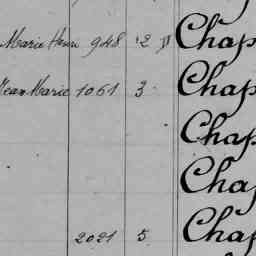 Marie Henri 948 2 Chap
Jean Marie 1061 3 Chap
Chap
Chap
2021 5 Chap